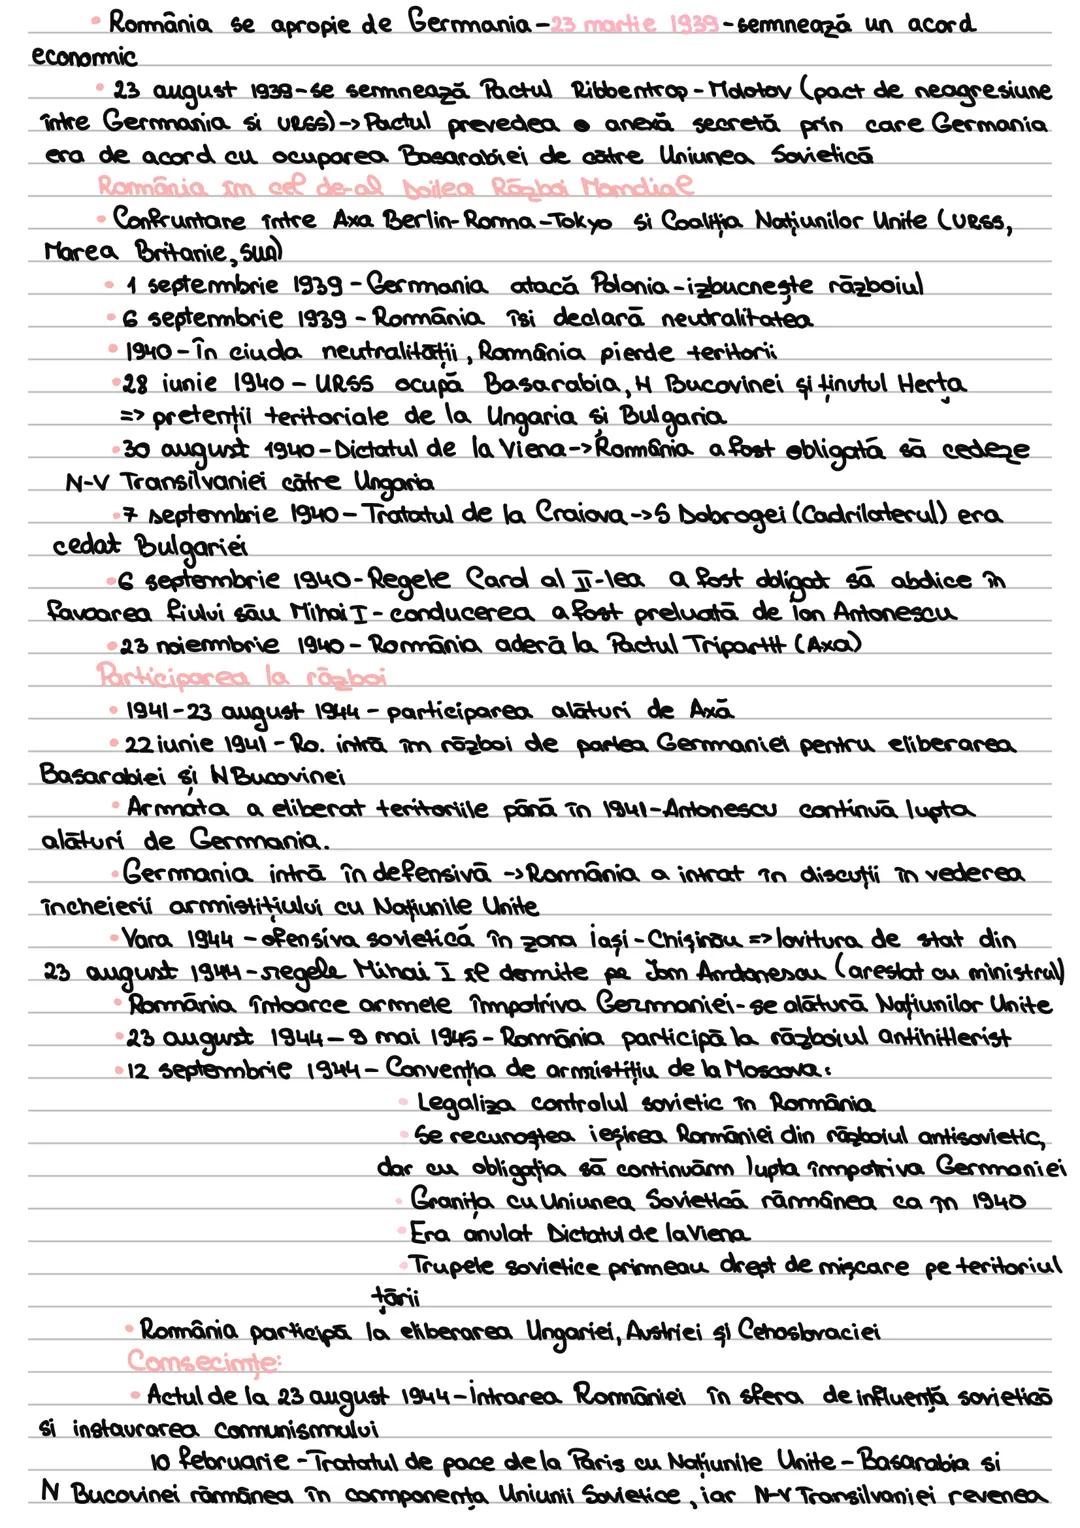 • România se apropie de Germania - 23 martie 1939 - semnează un acord
economic
• 23 august 1939 - se semnează Pactul Ribbentrop - Molotov (pact de neagresiune
între Germania si URSS) -> Pactul prevedea o anexă secretă prin care Germania
era de acord cu ocuparea Basarabiei de către Uniunea Sovietică
România în cel de-al Doilea Război Mondial
• Confruntare între Axa Berlin-Roma-Tokyo si Coaliția Națiunilor Unite (URSS,
Marea Britanie, SUA)
• 1 septembrie 1939 - Germania atacă Polonia - izbucnește războiul
• 6 septembrie 1939 - România își declară neutralitatea
• 1940 - în ciuda neutralității, România pierde teritorii
• 28 iunie 1940 - URSS ocupă Basarabia, N Bucovinei și ținutul Herța
=> pretenții teritoriale de la Ungaria și Bulgaria
• 30 august 1940 - Dictatul de la Viena -> România a fost obligată să cedeze
N-V Transilvaniei către Ungaria
• 7 septembrie 1940 - Tratatul de la Craiova -> S Dobrogei (Cadrilaterul) era
cedat Bulgariei
• 6 septembrie 1940 - Regele Carol al II-lea a fost obligat să abdice în
favoarea fiului său Mihai I - conducerea a fost preluată de Ion Antonescu
• 23 noiembrie 1940 - România aderă la Pactul Tripartit (Axa)
Participarea la război
• 1941 - 23 august 1944 - participarea alături de Axă
• 22 iunie 1941 - Ro. intră în război de partea Germaniei pentru eliberarea
Basarabiei și N Bucovinei
• Armata a eliberat teritoriile până în 1941 - Antonescu continuă lupta
alături de Germania.
• Germania intră în defensivă -> România a intrat în discuții în vederea
încheierii armistițiului cu Națiunile Unite
• Vara 1944 - ofensiva sovietică în zona Iași - Chișinău => lovitura de stat din
23 august 1944 - regele Mihai I îl demite pe Ion Antonescu (arestat cu ministrul)
• România întoarce armele împotriva Germaniei - se alătură Națiunilor Unite
• 23 august 1944 - 9 mai 1945 - România participă la războiul antihitlerist
• 12 septembrie 1944 - Convenția de armistițiu de la Moscova:
• Legaliza controlul sovietic în România
• Se recunoștea ieșirea României din războiul antisovietic,
dar cu obligația să continuăm lupta împotriva Germaniei
• Granița cu Uniunea Sovietică rămânea ca în 1940
• Era anulat Dictatul de la Viena
• Trupele sovietice primeau drept de mișcare pe teritoriul
țării
• România participă la eliberarea Ungariei, Austriei și Cehoslovaciei
Consecințe:
• Actul de la 23 august 1944 - Intrarea României în sfera de influență sovietică
si instaurarea comunismului
10 februarie - Tratatul de pace de la Paris cu Națiunile Unite - Basarabia si
N Bucovinei rămânea în componența Uniunii Sovietice, iar N-V Transilvaniei revenea